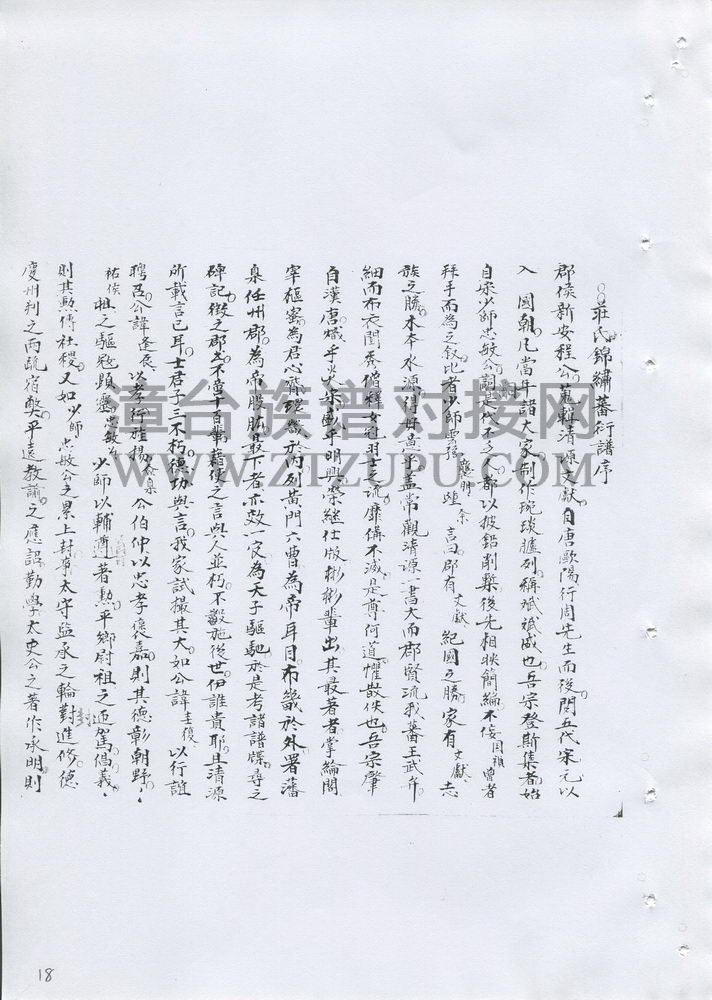 莊氏錦繡蕃衍譜序
郡侯新安程公蒐輯清源文獻自唐歐陽行周先生而後閱五代宋元以
入國朝凡當年諸大家制作琬琰臚列稱斌斌盛也吾宗登斯集者始
自宋少師忠敏公詞是後不乏人都以披鉛削槧後先相映簡編不佞因祖曾者
拜手而為之叙比者少師雲孫龔明余踵言曰郡有文獻紀國之勝家有文獻志
族之勝木本水源得毋意乎蓋常觀清源一書大而郡賢流我蕃王武弁
細而布衣閨秀僧釋女冠羽士之流靡備不滅是尊何道懼散佚也吾宗肇
自漢唐熾乎炎宋盛乎明興榮継仕版彬彬輩出其最著者掌綸閣
宰樞密為君心膂環幾於內列黄門六曹為帝耳目布畿於外署藩
臬任州郡為帝股肱最下者亦效一官為天子驅馳於是考諸譜牒尋之
碑記徵之郡乘不啻千百輩藉使之言與人並朽不觀施後世伊誰貴耶且清源
所載言已耳士君子三不朽德功與言我家試撮其大如公諱圭復以行誼
聘呂公諱逢辰以孝行旌揚公伯仲以忠孝褒嘉則其德彰朝野
祐侯祖之驅寇顕靈忠敏公少師以輔導著勲平鄉尉祖之迎駕倡義
則其勲傅社稷又如少師忠敏公之累上封章太守益承之輪對進修德
慶州判之兩疏宿獘平遠教諭之應詔勤學太史公之著作承明則
漳台族谱对接网
WWW.ZTZUPU.COM
18